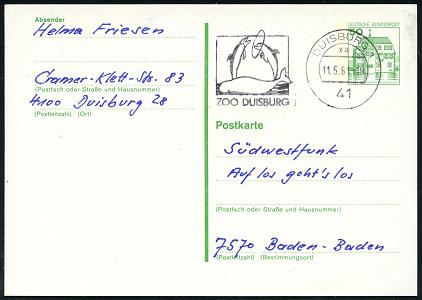 Absender
Helma Friesen
Cramer-Klett-Str. 83
(Postfach oder Straße und Hausnummer)
4100 Duisburg 28
(Postleitzahl) (Ort)
DEUTSCHE BUNDESPOST
50
ZOO DUISBURG
DUISBURG
xa
11.5.8
41
Postkarte
Südwestfunk
Auf los geht's los
(Postfach oder Straße und Hausnummer)
7570 Baden-Baden
(Postleitzahl) (Bestimmungsort)